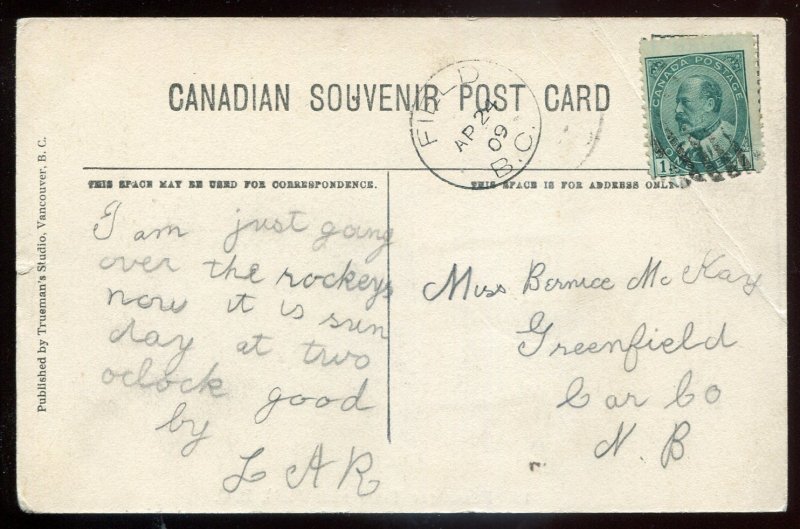 CANADIAN SOUVENIR POST CARD
FIELD
AP 24
09
B.C.
CANADA POSTAGE
1
THIS SPACE MAY BE USED FOR CORRESPONDENCE.
THIS SPACE IS FOR ADDRESS ONLY
Published by Trueman's Studio, Vancouver, B. C.
I am just going
over the rockeys
now it is sun
day at two
oclock good
by
L A R
Miss Bernice Mc Kay
Greenfield
Car Co
N. B